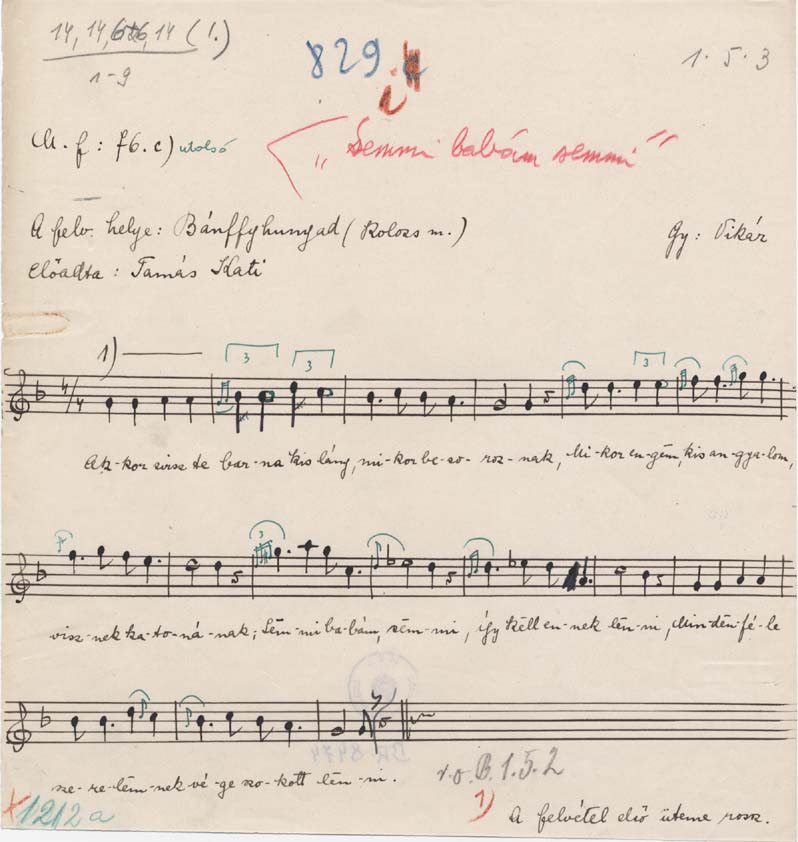 14, 14, 14 (1.)
1-9
829
1. 5. 3
M. f: 76. c) utolsó
"Semmi babám semmi"
A felv. helye: Bánffyhunyad (Kolozs m.)
Gy: Vikár
Előadta: Tamás Kati
1)
3 3 3
4/4
Ak-kor sirsz te bar-na kis lány, mi-kor be-so-roz-nak, Mi-kor en-gëm, kis an-gya-lom,
3
visz-nek ka-to-ná-nak; Sëm-mi ba-bám, sëm-mi, így këll en-nek lën-ni, Min-dën-fé-le
sze-re-lëm-nek vé-ge szo-kott lën-ni.
v.ö. B. 1. 5. 2
1212 a
1) A felvétel első üteme rossz.